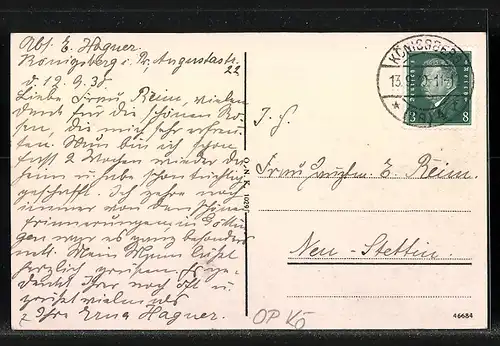 Abs. E. Hagner.
Königsberg i. Pr., Augustastr.
22
d. 12.9.30.
Liebe Frau Reim, vielen
Dank für die schönen Ro-
sen, die mich sehr erfreu-
ten. Nun bin ich schon
fast 2 Wochen wieder da-
heim u. habe schon tüchtig
geschafft. Ich zehre noch
immer von den schönen
Erinnerungen, in Göttin-
gen war es ganz besonders
nett. Mein Mann läßt
herzlich grüßen. Es ge-
denkt Ihrer noch oft u.
grüßt vielmals
Ihre Erna Hagner.
KÖNIGSBERG
8 8
I. H.
Frau E. Reim.
Neu-Stettin.
OP Kö
46684